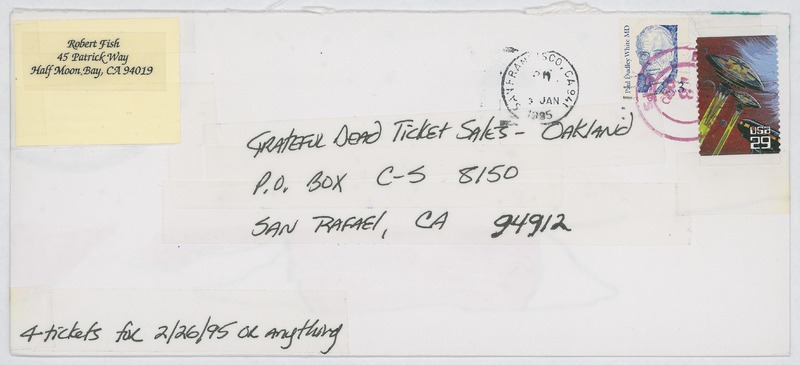 Robert Fish
45 Patrick Way
Half Moon Bay, CA 94019
SAN FRANCISCO, CA 941
PM
3 JAN
1995
Paul Dudley White MD
USA
29
GRATEFUL DEAD TICKET SALES - OAKLAND
P.O. BOX C-S 8150
SAN RAFAEL, CA 94912
4 tickets for 2/26/95 or anything